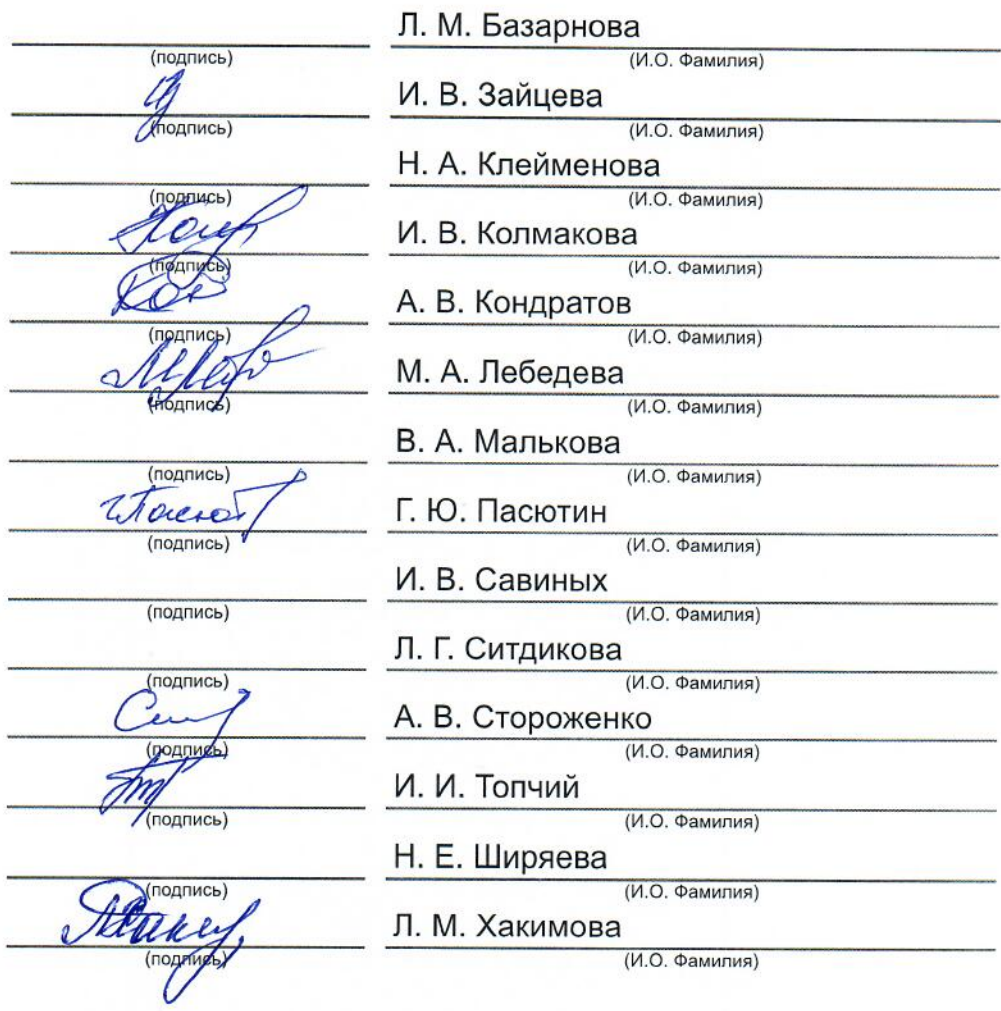 Л. М. Базарнова
(подпись) (И.О. Фамилия)
И. В. Зайцева
(подпись) (И.О. Фамилия)
Н. А. Клейменова
(подпись) (И.О. Фамилия)
И. В. Колмакова
(подпись) (И.О. Фамилия)
А. В. Кондратов
(подпись) (И.О. Фамилия)
М. А. Лебедева
(подпись) (И.О. Фамилия)
В. А. Малькова
(подпись) (И.О. Фамилия)
Г. Ю. Пасютин
(подпись) (И.О. Фамилия)
И. В. Савиных
(подпись) (И.О. Фамилия)
Л. Г. Ситдикова
(подпись) (И.О. Фамилия)
А. В. Стороженко
(подпись) (И.О. Фамилия)
И. И. Топчий
(подпись) (И.О. Фамилия)
Н. Е. Ширяева
(подпись) (И.О. Фамилия)
Л. М. Хакимова
(подпись) (И.О. Фамилия)